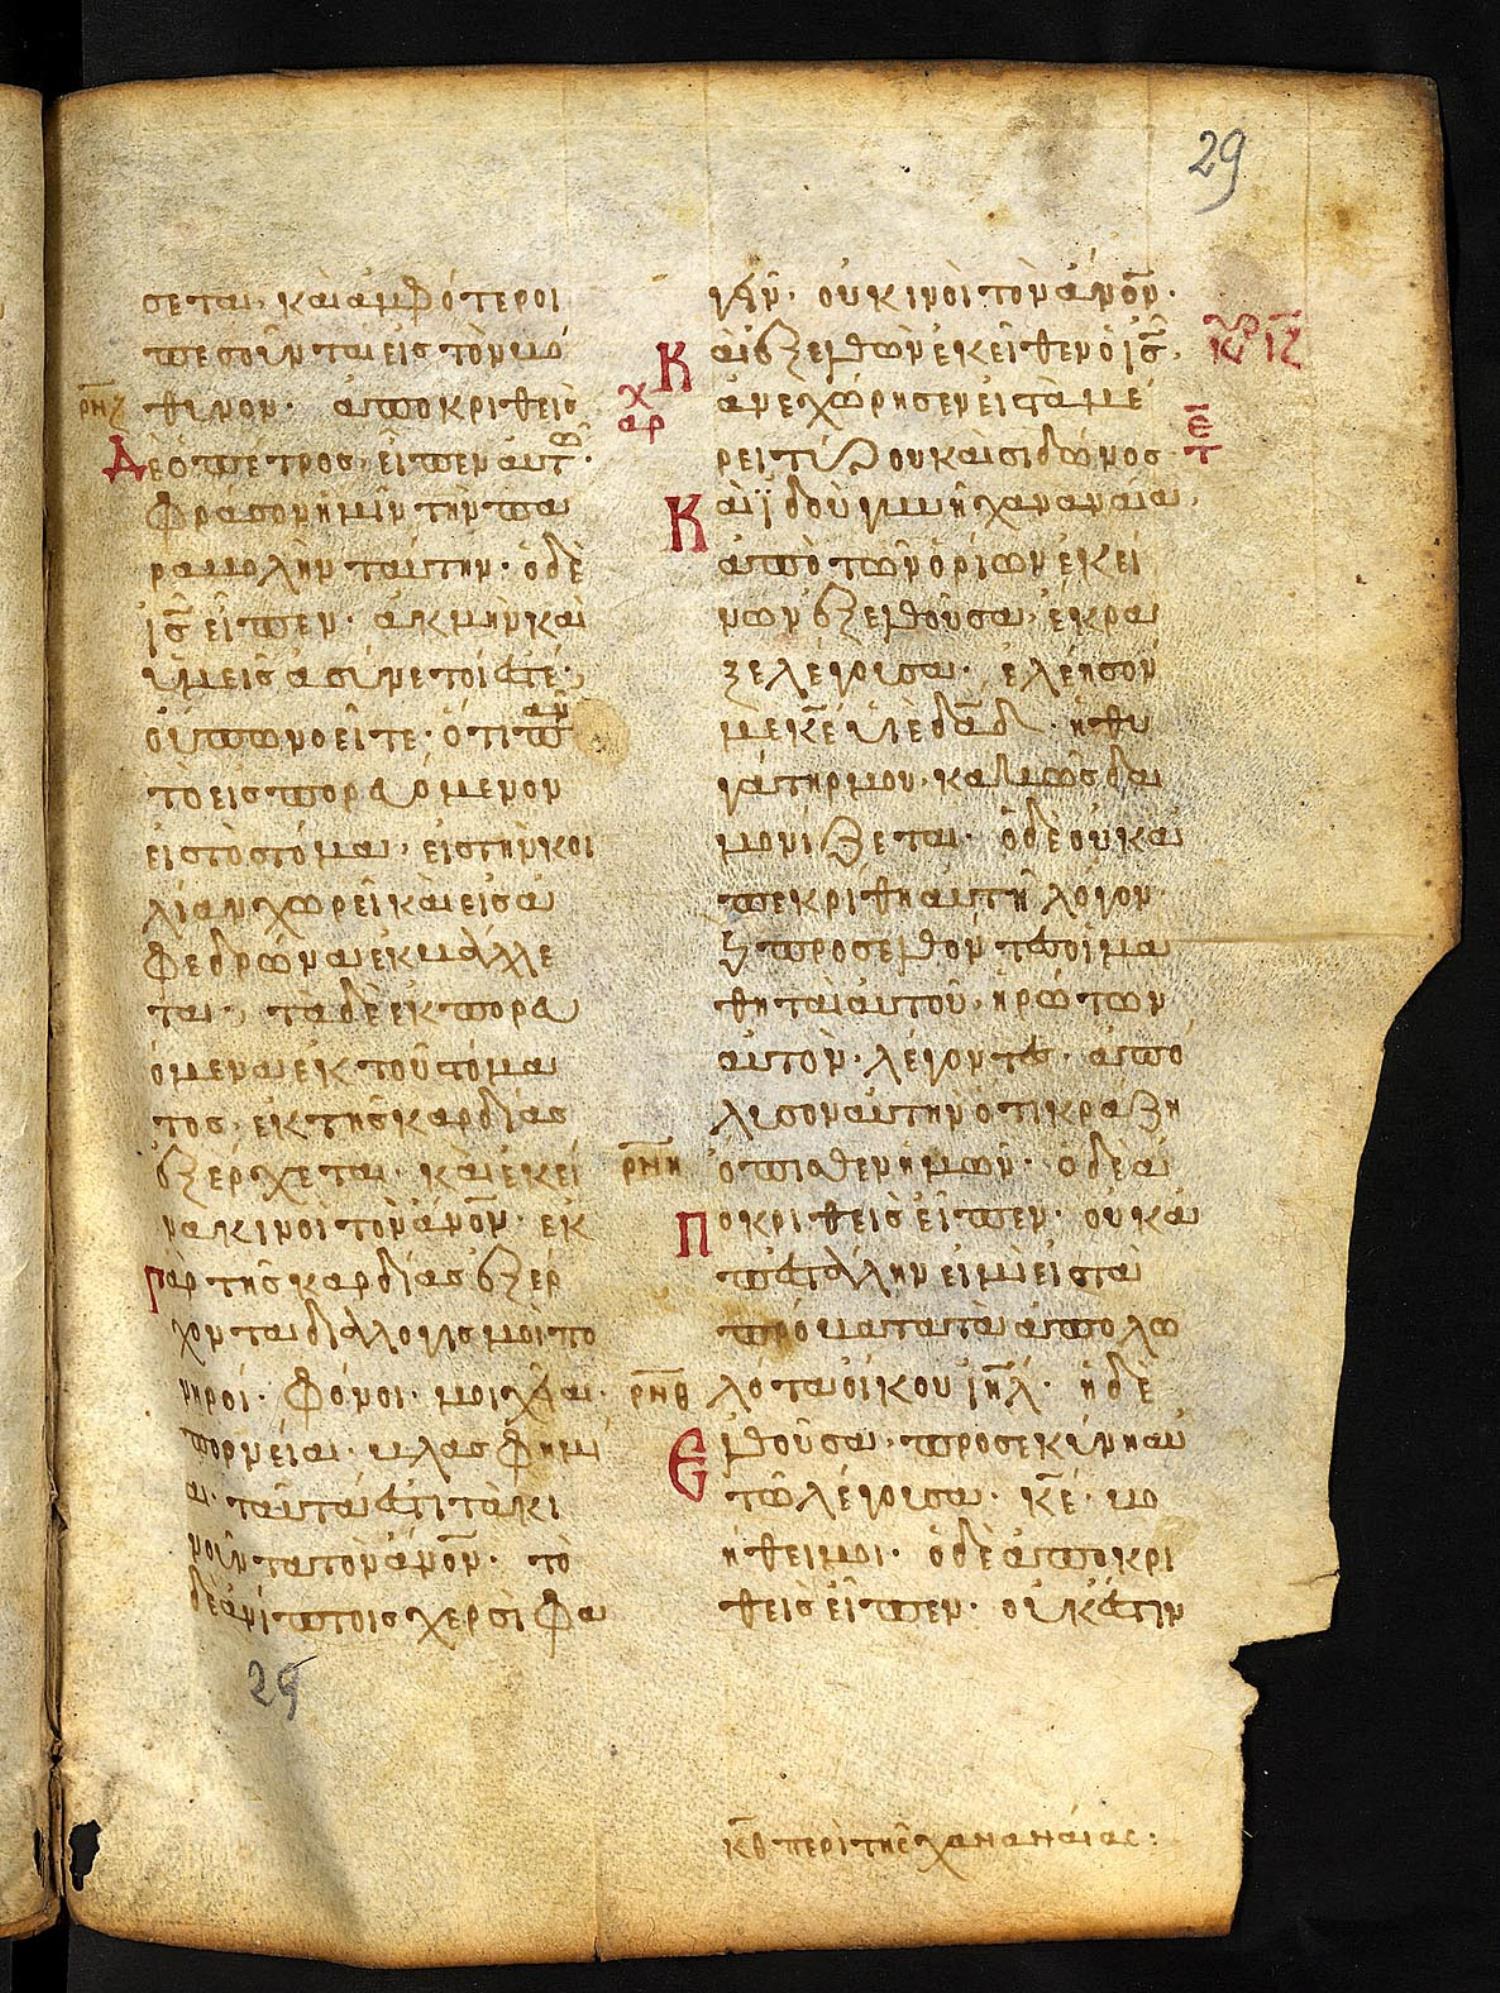 29
σεται, καὶ ἀμφότεροι
πεσοῦνται εἰς τὸν βό
ρνζ
θυνον· ἀποκριθεὶς
Δὲ ὁ πέτρος, εἶπεν αὐτῶ·
φράσον ἡμῖν τὴν πα
ραβολὴν ταύτην· ὁ δὲ
ἰς εἶπεν· ἀκμὴν καὶ
ὑμεῖς ἀσύνετοί ἐστέ·
οὔπω νοεῖτε· ὅτι πᾶν
τὸ εἰσπορευόμενον
εἰς τὸ στόμα, εἰς τὴν κοι
λίαν χωρεῖ καὶ εἰς ἀ
φεδρῶνα ἐκβάλλε
ται·, τὰ δὲ ἐκπορευ
όμενα ἐκ τοῦ στόμα
τος, ἐκ τῆς καρδίας
ἐξέρχεται· καὶ ἐκεῖ
να κινοῖ τὸν ἄνον· ἐκ
Γὰρ τῆς καρδίας ἐξέρ
χονται διαλογισμοὶ πο
νηροί· φόνοι· μοιχεῖαι·
πορνεῖαι· βλασφημί
αι· ταῦτά ἐστι τὰ κι
νοῦντα τὸν ἄνον· τὸ
δὲ ἀνίπτοις χερσὶ φα
29
γεῖν· οὐ κινοῖ τὸν ἄνον·
Καὶ ἐξελθὼν ἐκεῖθεν ὁ ἰς,
χ
αρ
ἀνεχώρησεν εἰς τὰ μέ
ε
τ
ρει τύρου καὶ σιδῶνος
Καὶ ἰδοὺ γυνὴ χαναναία,
ἀπὸ τῶν ὁρίων ἐκεί
νων ἐξελθοῦσα, ἔκραυ
ζε λέγουσα· ἐλέησόν
με κε υἱὲ δαδ· ἡ θυ
γάτηρ μου, κακῶς δαι
μονίζεται· ὁ δὲ οὐκ ἀ
πεκρίθη αὐτῆ λόγον·
Ϛ προσελθόντες οἱ μα
θηταὶ αὐτοῦ, ἠρώτων
αὐτὸν· λέγοντες· ἀπό
λυσον αὐτὴν ὅτι κράζη
ρνη
ὄπισθεν ἡμῶν· ὁ δὲ ἀ
Ποκριθεὶς εἶπεν· οὐκ ἀ
πεστάλην εἰ μὴ εἰς τὰ
πρόβατα τὰ ἀπολω
ρνθ
λότα οἴκου ιηλ· ἡ δὲ
Ελθοῦσα, προσεκύνη αὐ
τῶ λέγουσα· κε· βο
ήθει μοι· ὁ δὲ ἀποκρι
θεὶς εἶπεν· οὐκ ἔστιν
κθ περὶ τῆς χαναναίας: